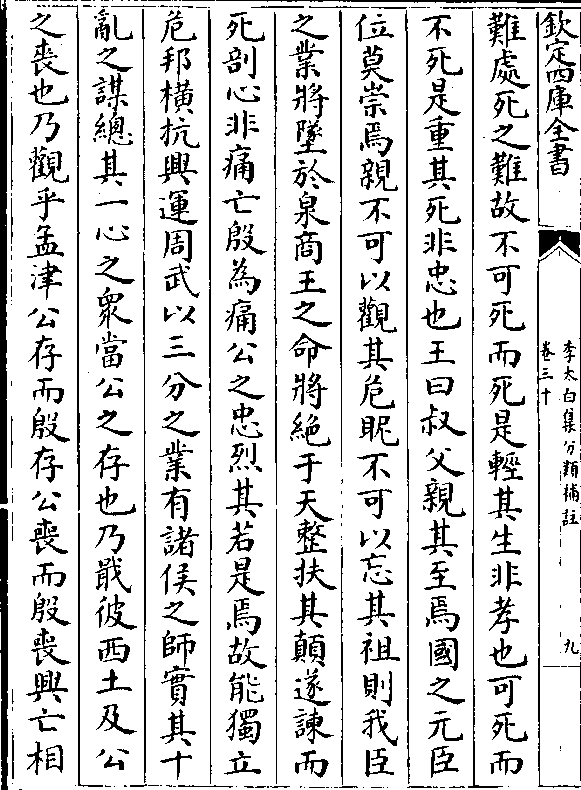 欽定四庫全書
李太白集分類補註
卷三十
九
難處死之難故不可死而死是輕其生非孝也可死而
不死是重其死非忠也王曰叔父親其至焉國之元臣
位莫崇焉親不可以觀其危昵不可以忘其祖則我臣
之業將墜於泉商王之命將絕于天整扶其顛遂諫而
死剖心非痛亡殷為痛公之忠烈其若是焉故能獨立
危邦橫抗興運周武以三分之業有諸侯之師實其十
亂之謀總其一心之衆當公之存也乃戢彼西土及公
之喪也乃觀乎孟津公存而殷存公喪而殷喪興亡相